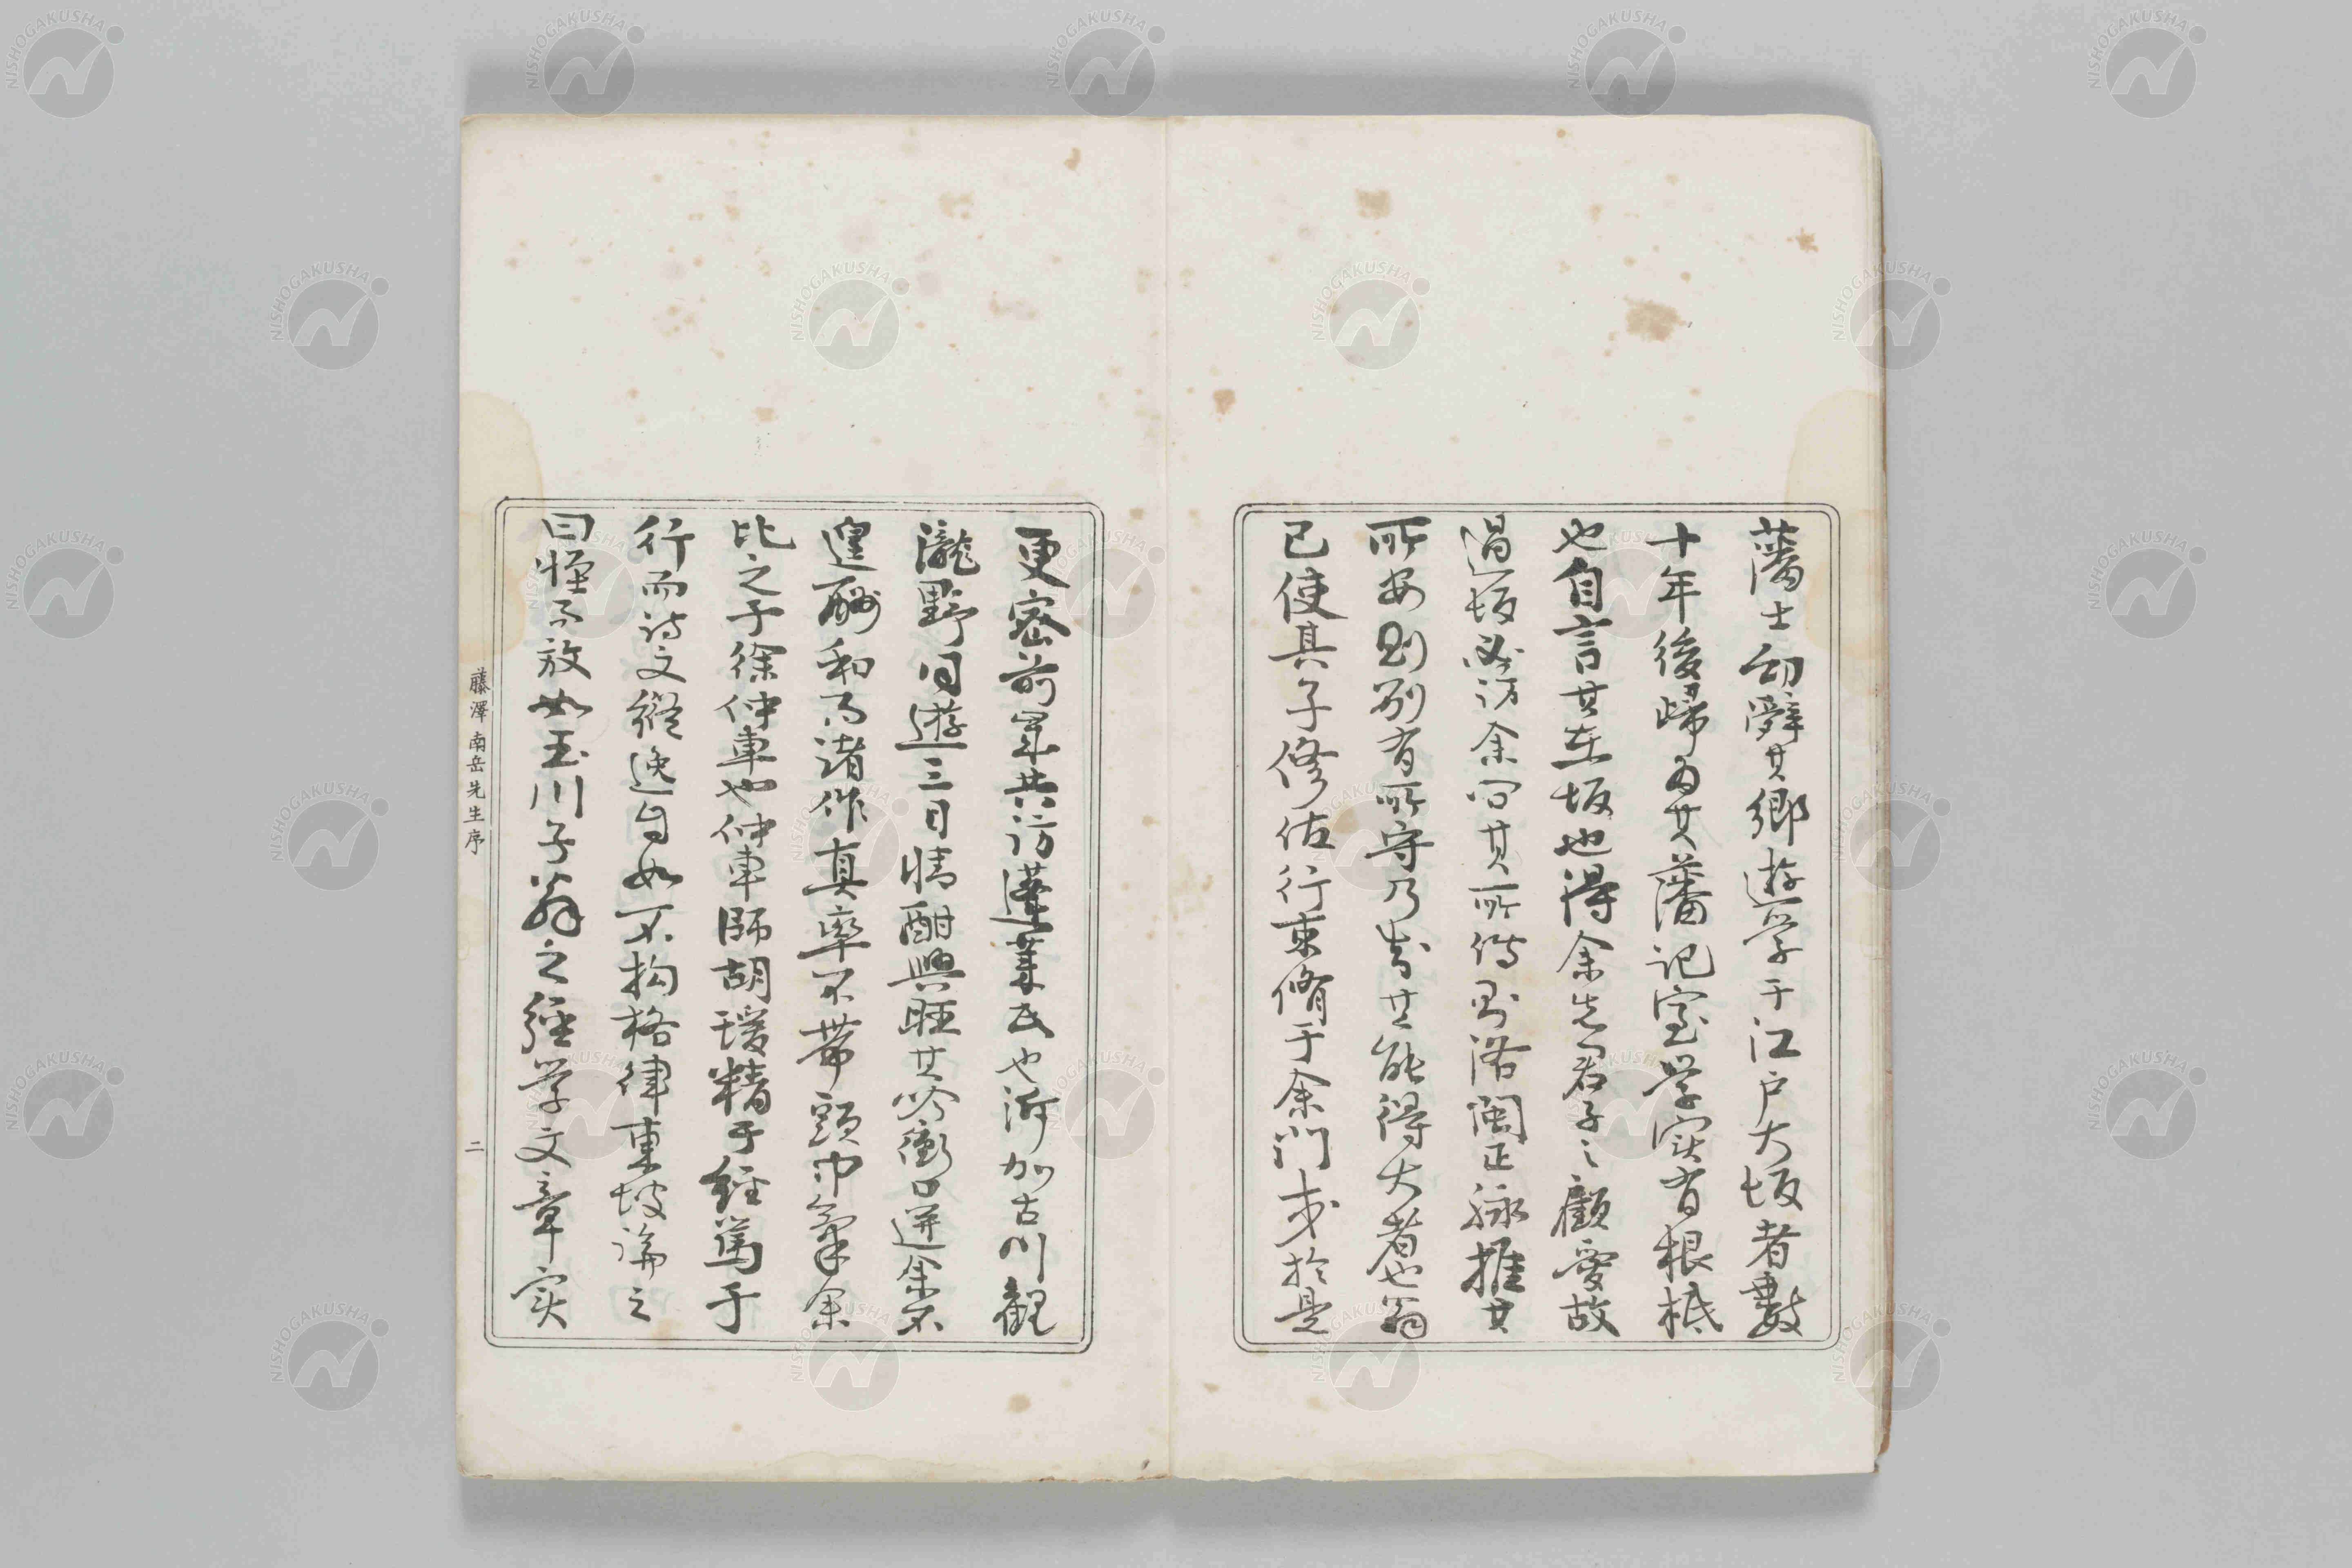 藩士幼辭其鄉遊学于江戸大坂者數
十年後歸為其藩記室学实有根柢
也自言其在坂也得余先君子之顧愛故
過坂必訪余问其所傳則洛閩正脉推其
所安則別有所守乃知其能得大者也翁
已使其子修佐行束脩于余门交於是
更密前年共訪蓬莱氏也泝加古川觀
瀧野同遊三日情酣興旺其吟衝口迸余不
遑酬和而諸作真率不帶頭巾氣余
比之于徐仲車也仲車師胡瑗精于經篤于
行而詩文縱逸自如不拘格律東坡論之
曰怪而放如玉川子翁之經学文章实
藤澤南岳先生序
二
NISHOGAKUSHA